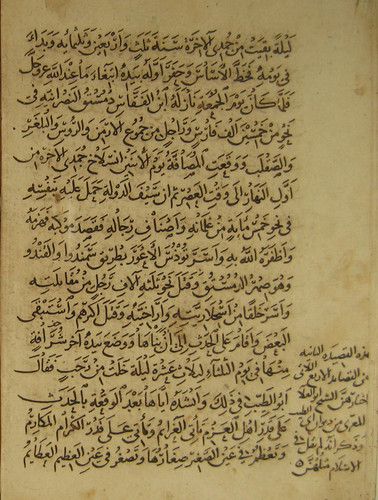 ليلة بقيت من جمدى الاخرة سنة ثلث واربعين وثلثمائة وبدا
في يومه فخط الاساس وحفر اوله بيده ابتغاء ما عند الله عز وجل
فلما كان يوم الجمعة نازله ابن الفقاس دمستق النصرانية في
نحو من خمسين الف فارس وراجل من جموع الارمن والروس والبلغر
والصقلب ووقعت المصافة يوم الاثنين انسلاخ جمدى الاخرة من
اول النهار الى وقت العصر ثم ان سيف الدولة حمل عليه بنفسه
في نحو خمس مائة من غلمانه واصناف رجاله فقصد موكبه فهزمه
واظفره الله به واسر تودس الاعور بطريق سمندو ولقندو
وهو صهر الدمستق وقتل نحو ثلثة الاف رجل من مقاتلته
واسر خلقا من اسخلاريته واراخنته وقتل اكثرهم واستبقى
البعض واقام على الحدث الى ان بناها ووضع بيده اخر شرافة
منها في يوم الثلثاء لثلاث عشرة ليلة خلت من رجب فقال
ابو الطيب في ذلك وانشده اياها بعد الوقعة بالحدث
على قدر اهل العزم تأتي العزائم وتأتي على قدر الكرام المكارم
وتعظم في عين الصغير صغارها وتصغر في عين العظيم العظائم
هذه القصيدة الثانية
من القصايد الاربع اللاتي
اختارهن الشيخ ابو العلا
المعري من ديوان ابي الطيب
وذكر انه لم يقل في
الاسلام مثلهن